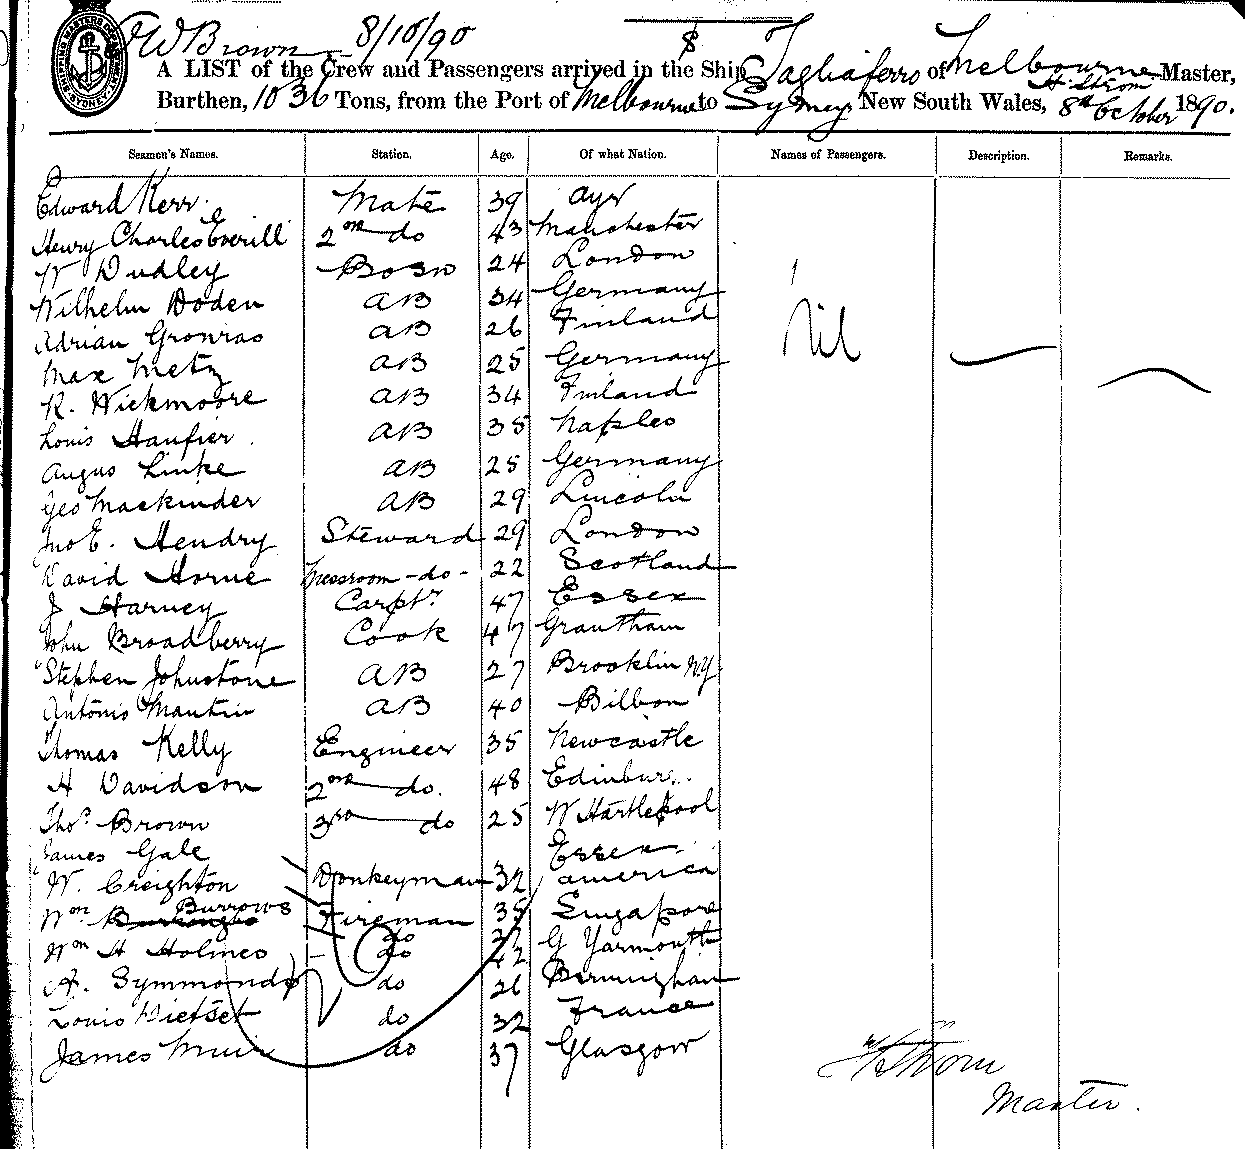 W Brown 8/10/90
A LIST of the Crew and Passengers arrived in the Ship Tagliaferro of Melbourne H. Strom Master,
Burthen, 1036 Tons, from the Port of Melbourne to Sydney New South Wales, 8th October 1890.
Seamen's Names. Station. Age. Of what Nation. Names of Passengers. Description. Remarks.
Edward Kerr. Mate 39 Ayr
Henry Charles Everill 2nd do 43 Manchester
W Dudley Bosn 24 London
Wilhelm Doden AB 34 Germany
Adrian Gronras AB 26 Finland
Nil
Max Metz AB 25 Germany
R. Wickmoore AB 34 Finland
Louis Haufier. AB 35 Naples
Angus Linke AB 25 Germany
Geo Mackinder AB 29 Lincoln
Jno E. Hendry Steward 29 London
David Horne Messroom -do- 22 Scotland
J Harney Carptr 47 Essex
John Broadberry Cook 47 Grantham
Stephen Johnstone AB 27 Brooklin NY
Antonio Mautin AB 40 Bilbon
Thomas Kelly Engineer 35 Newcastle
H Davidson 2nd do. 48 Edinburg.
Thos Brown 3rd do 25 W Hartlepool
James Gale Essex
W. Creighton Donkeyman 32 America
Wm Burrows Fireman 35 Singapore
Wm H Holmes do do 42 G Yarmouth
A. Symmonds do 26 Birmingham
Louis do 32 France
James Muir do 37 Glasgow
H Strom
Master.